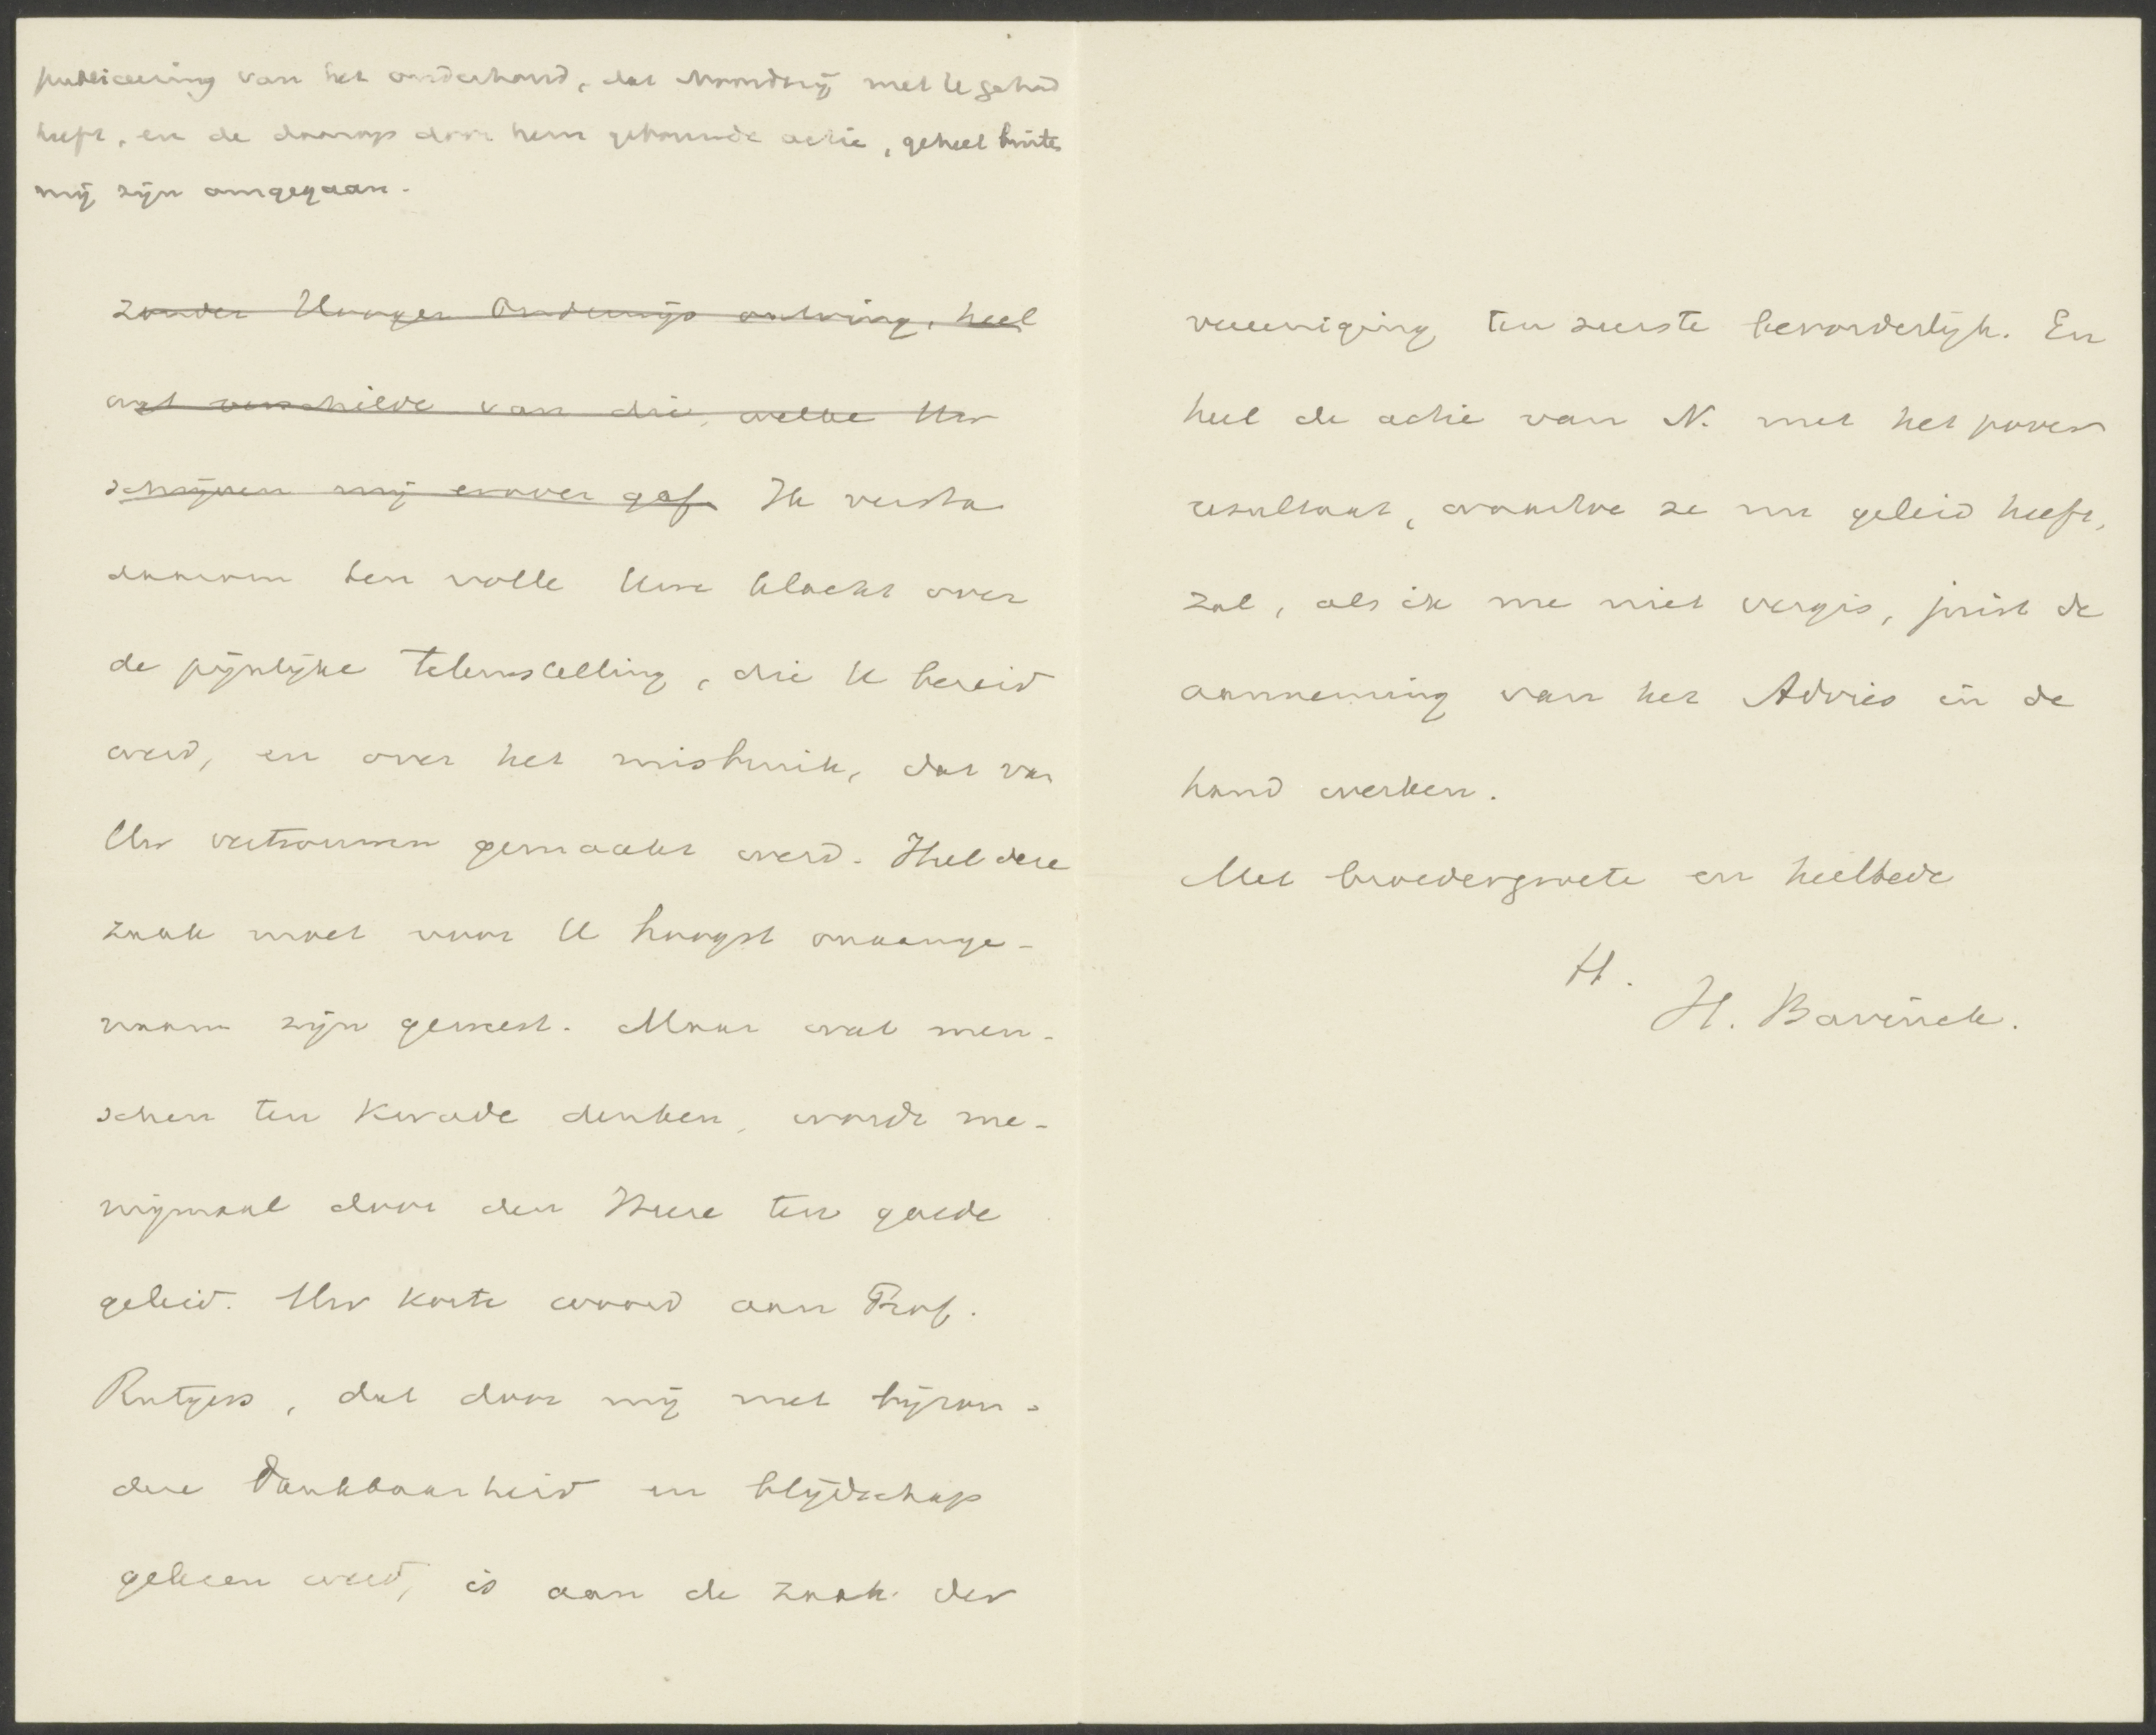 publiceering van het onderhoud, dat Noordtzij met U gehad
heeft, en de daarop door hem gebouwde actie, geheel buiten
mij zijn omgegaan.
zonder Hooger Onderwijs ontving, heel
wat verschilde van die, welke Uw
schrijven mij erover gaf. Ik versta
daarom ten volle Uwe klacht over
de pijnlijke teleurstelling, die U bereid
werd, en over het misbruik, dat van
Uw vertrouwen gemaakt werd. Heel deze
zaak moet voor U hoogst onaange-
naam zijn geweest. Maar wat men-
schen ten kwade denken, wordt me-
nigmaal door den Heere ten goede
geleid. Uw korte woord aan Prof.
Rutgers, dat door mij met bijzon-
dere dankbaarheid en blijdschap
gelezen werd, is aan de zaak der
vereeniging ten zeerste bevorderlijk. En
heel de actie van N. met het pover
resultaat, waartoe ze nu geleid heeft,
zal, als ik me niet vergis, juist de
aanneming van het Advies in de
hand werken.
Met broedergroete en heilbede
H.
H. Bavinck.